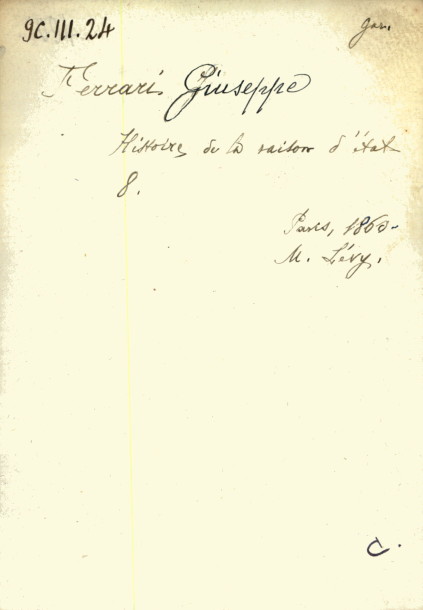 9C.III.24
Ferrari Giuseppe
Histoire de la raison d'état
8.
Paris, 1860.
M. Lévy.
C.